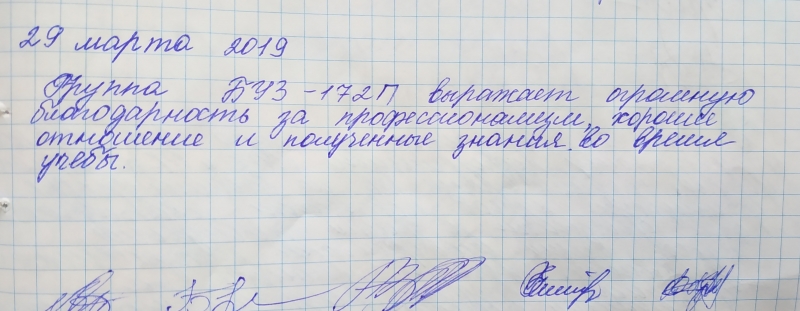 29 марта 2019
Группа БУЗ-172П выражает огромную
благодарность за профессионализм, хорошее
отношение и полученные знания во время
учебы.